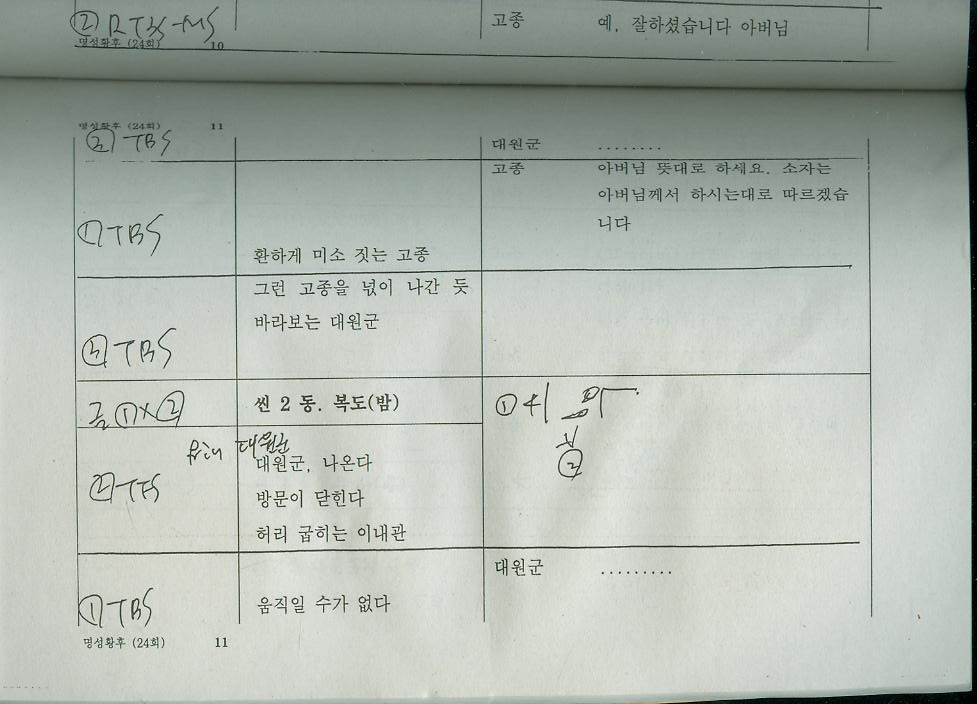 ② RTBS-MS
고종 예, 잘하셨습니다 아버님
명성황후 (24회) 10
명성황후 (24회) 11
TBS
대원군 ........
고종 아버님 뜻대로 하세요. 소자는
아버님께서 하시는대로 따르겠습
니다
① TBS
환하게 미소 짓는 고종
그런 고종을 넋이 나간 듯
바라보는 대원군
TBS
① X ②
씬 2 동. 복도(밤)
①
②
대원군
대원군, 나온다
② TFS
방문이 닫힌다
허리 굽히는 이내관
대원군 .........
① TBS
움직일 수가 없다
명성황후 (24회) 11